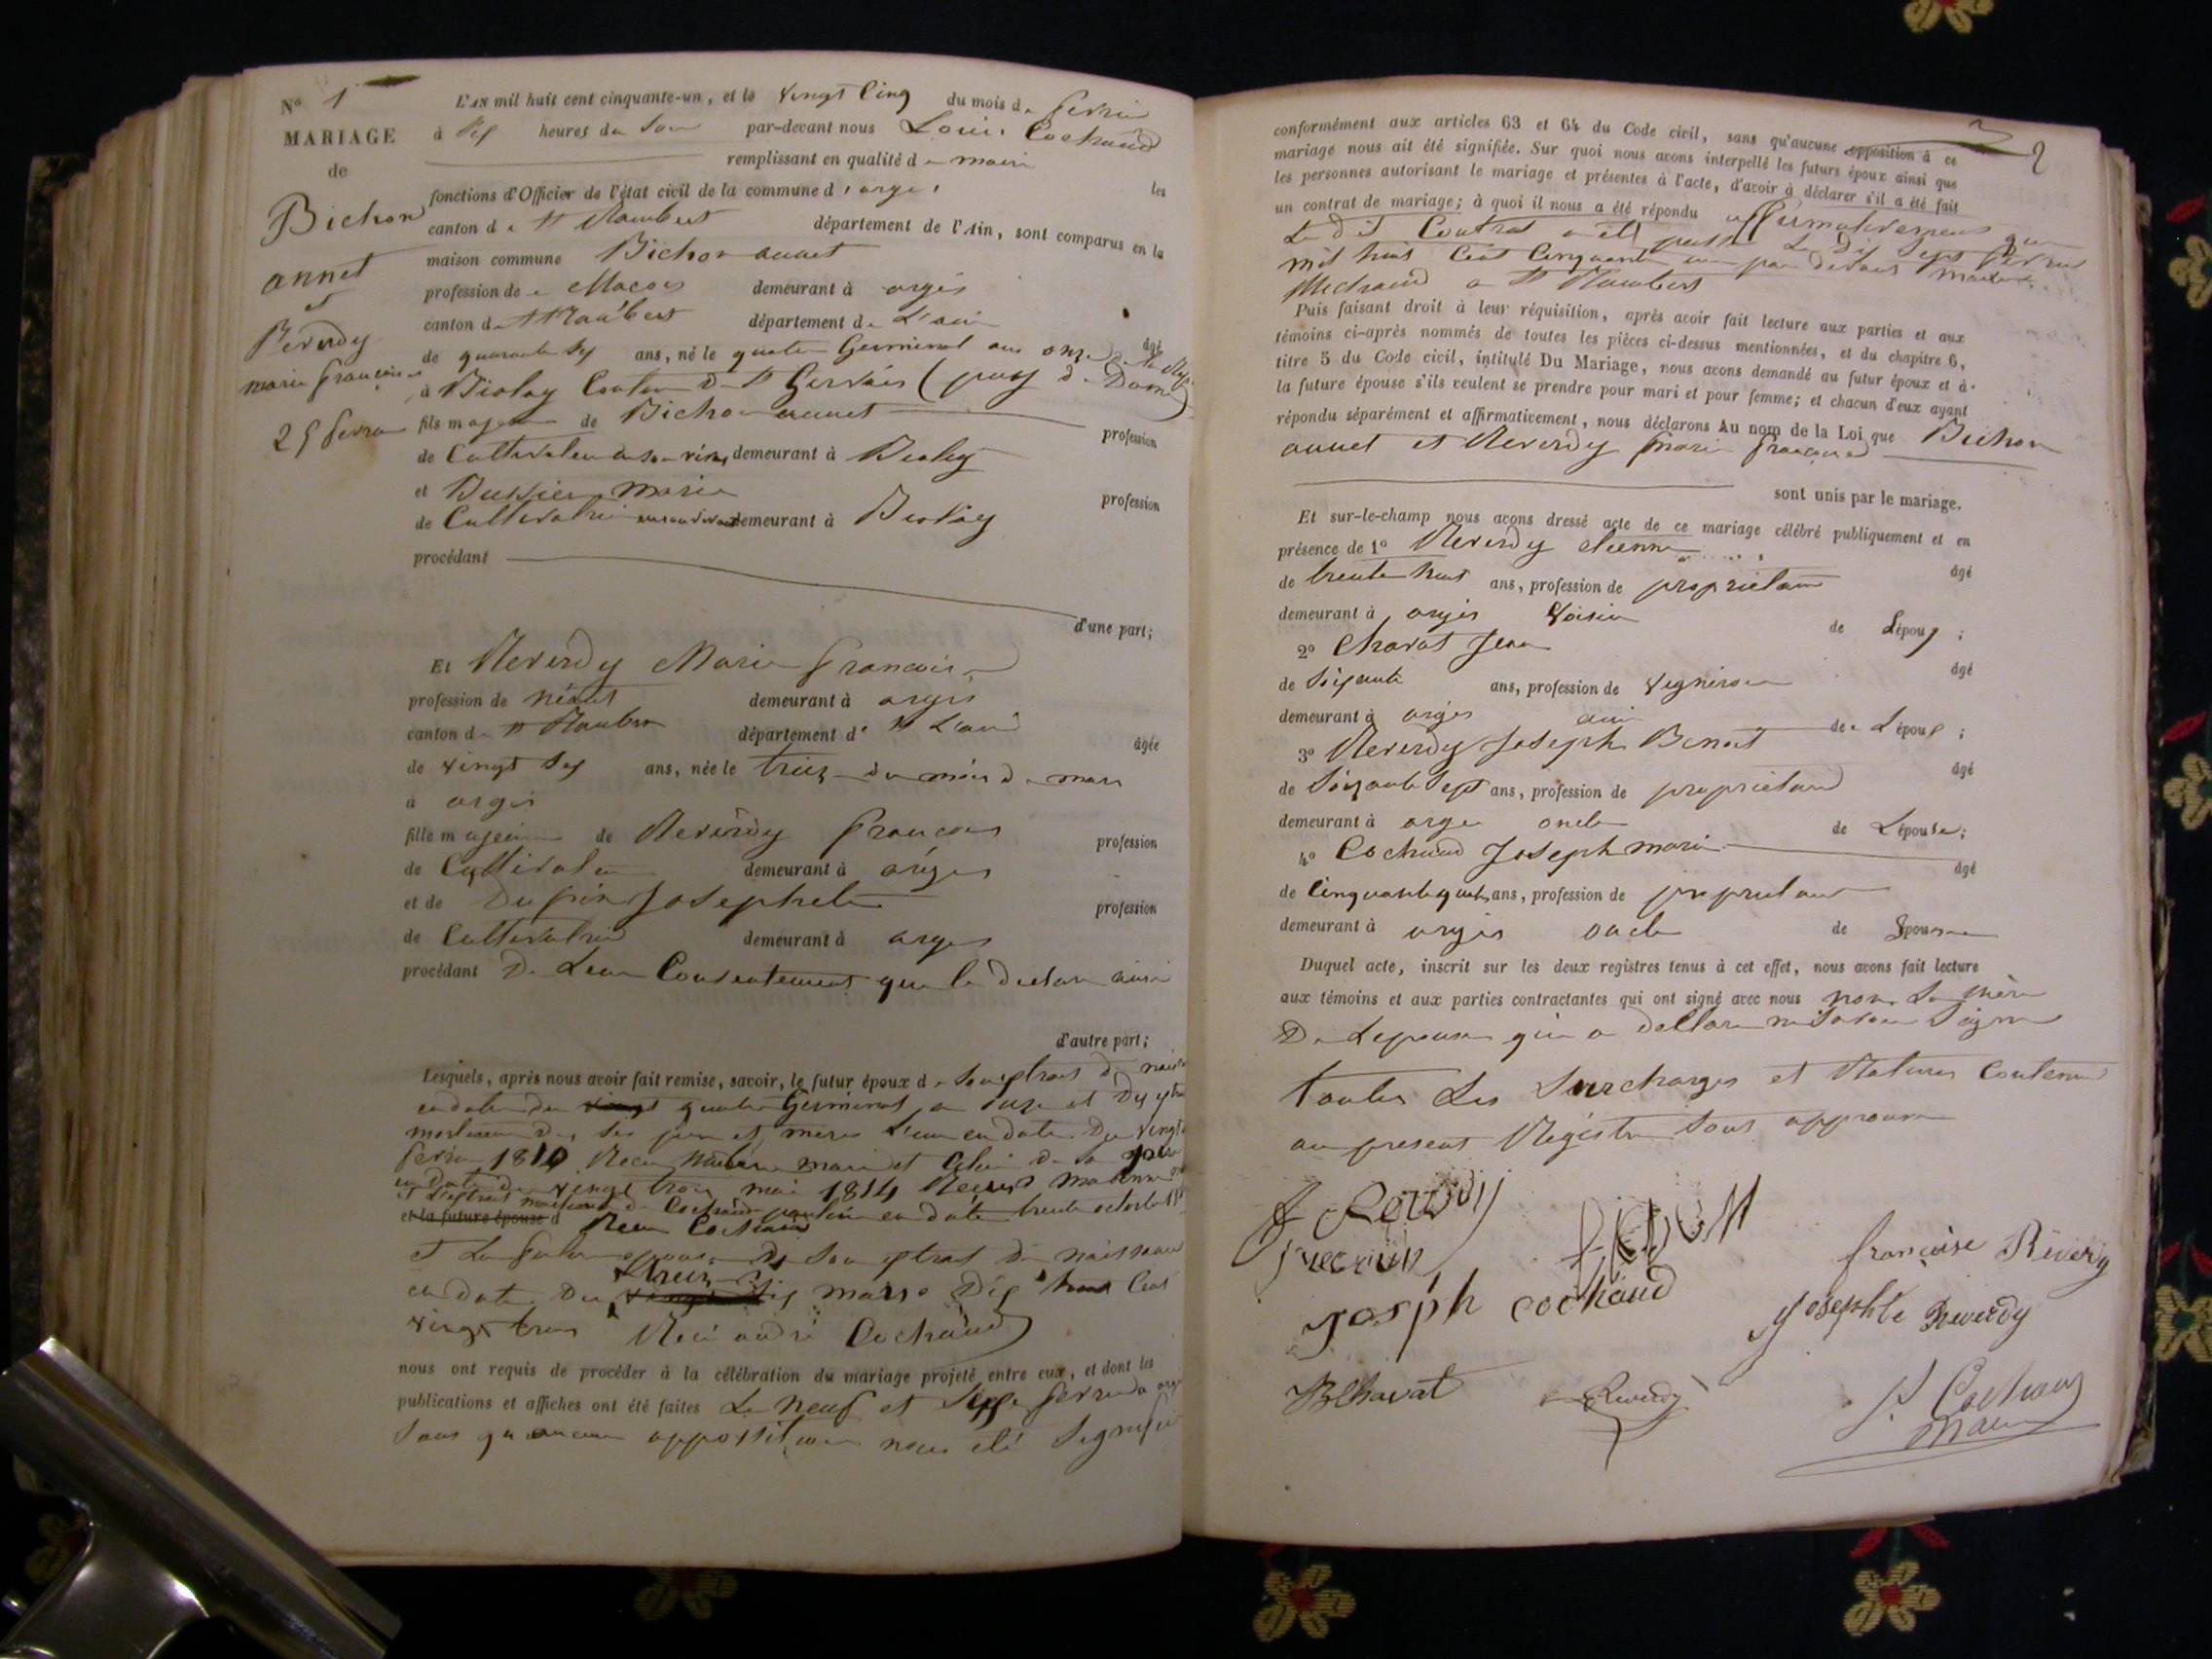 N° 1
MARIAGE
de
Bichon
annet
et
Reverdy
marie françoise
25 fevrier
L'AN mil huit cent cinquante-un, et le vingt Cinq du mois de fevrier
à Six heures du Soir par-devant nous Louis Cochaud
remplissant en qualité de maire les
fonctions d'Officier de l'état civil de la commune d'argis
canton de St Rambert département de l'Ain, sont comparus en la
maison commune Bichon annet
profession de Macon demeurant à argis
canton de St Rambert département de L'ain âgé
de quarante Six ans, né le quatre Germinal an onze
à Biolay Canton de St Gervais (puy de Dome)
fils majeur de Bichon annet profession
de Cultivateur demeurant à Biolay
et Bussier marie profession
de Cultivatrice demeurant à Biolay
procédant
d'une part;
Et Reverdy Marie françoise
profession de néant demeurant à argis
canton de St Rambert département de L'ain âgée
de vingt Six ans, née le treize du mois de mars
à argis
fille majeure de Reverdy françois profession
de Cultivateur demeurant à argis
et de Dupin Josephete profession
de Cultivatrice demeurant à argis
procédant De Leur Consentement que le declare ainsi
d'autre part;
Lesquels, après nous avoir fait remise, savoir, le futur époux de Son extrait de
en date du vingt quatre Germinal an onze et
De Ses pere et mere L'un en date Du vingt
fevrier 1810 maire et Celui De Sa
en date Du vingt trois mai 1814
et la future épouse d
et La future epouse De Son extrait De naissance
en date Du treize mars Dix huit Cent
vingt trois Cochaud
nous ont requis de procéder à la célébration du mariage projeté entre eux, et dont les
publications et affiches ont été faites Le neuf et Seize fevrier a
Sans qu aucune oppossition nous été Signifié
2
conformément aux articles 63 et 64 du Code civil, sans qu'aucune opposition à ce
mariage nous ait été signifiée. Sur quoi nous avons interpellé les futurs époux ainsi que
les personnes autorisant le mariage et présentes à l'acte, d'avoir à déclarer s'il a été fait
un contrat de mariage; à quoi il nous a été répondu affirmativement que
Le Dit Contrat a été passé Le Dix Sept fevrier
mil huit Cent Cinquante un par devant
a St Rambert
Puis faisant droit à leur réquisition, après avoir fait lecture aux parties et aux
témoins ci-après nommés de toutes les pièces ci-dessus mentionnées, et du chapitre 6,
titre 5 du Code civil, intitulé Du Mariage, nous avons demandé au futur époux et à
la future épouse s'ils veulent se prendre pour mari et pour femme; et chacun d'eux ayant
répondu séparément et affirmativement, nous déclarons Au nom de la Loi que Bichon
annet et Reverdy Marie françoise
sont unis par le mariage.
Et sur-le-champ nous avons dressé acte de ce mariage célébré publiquement et en
présence de 1° Reverdy etienne âgé
de trente huit ans, profession de proprietaire
demeurant à argis Voisin de Lépoux ;
2° Charat Jean âgé
de Soixante ans, profession de Vigneron
demeurant à argis ami de Lépoux ;
3° Reverdy Joseph Benoit âgé
de Soixante Sept ans, profession de proprietaire
demeurant à argis oncle de Lépouse;
4° Cochaud Joseph marie âgé
de Cinquante quatre ans, profession de proprietaire
demeurant à argis oncle de Epouse
Duquel acte, inscrit sur les deux registres tenus à cet effet, nous avons fait lecture
aux témoins et aux parties contractantes qui ont signé avec nous non La mère
De Lepouse qui a declaré ne Savoir Signer
toutes Les Surcharges et Ratures Contenues
au present Régistre Sont approuvé
françoise Réverdy
Joseph cochaud
Josephte Reverdy
B Charat
Reverdy
L Cochaud
maire